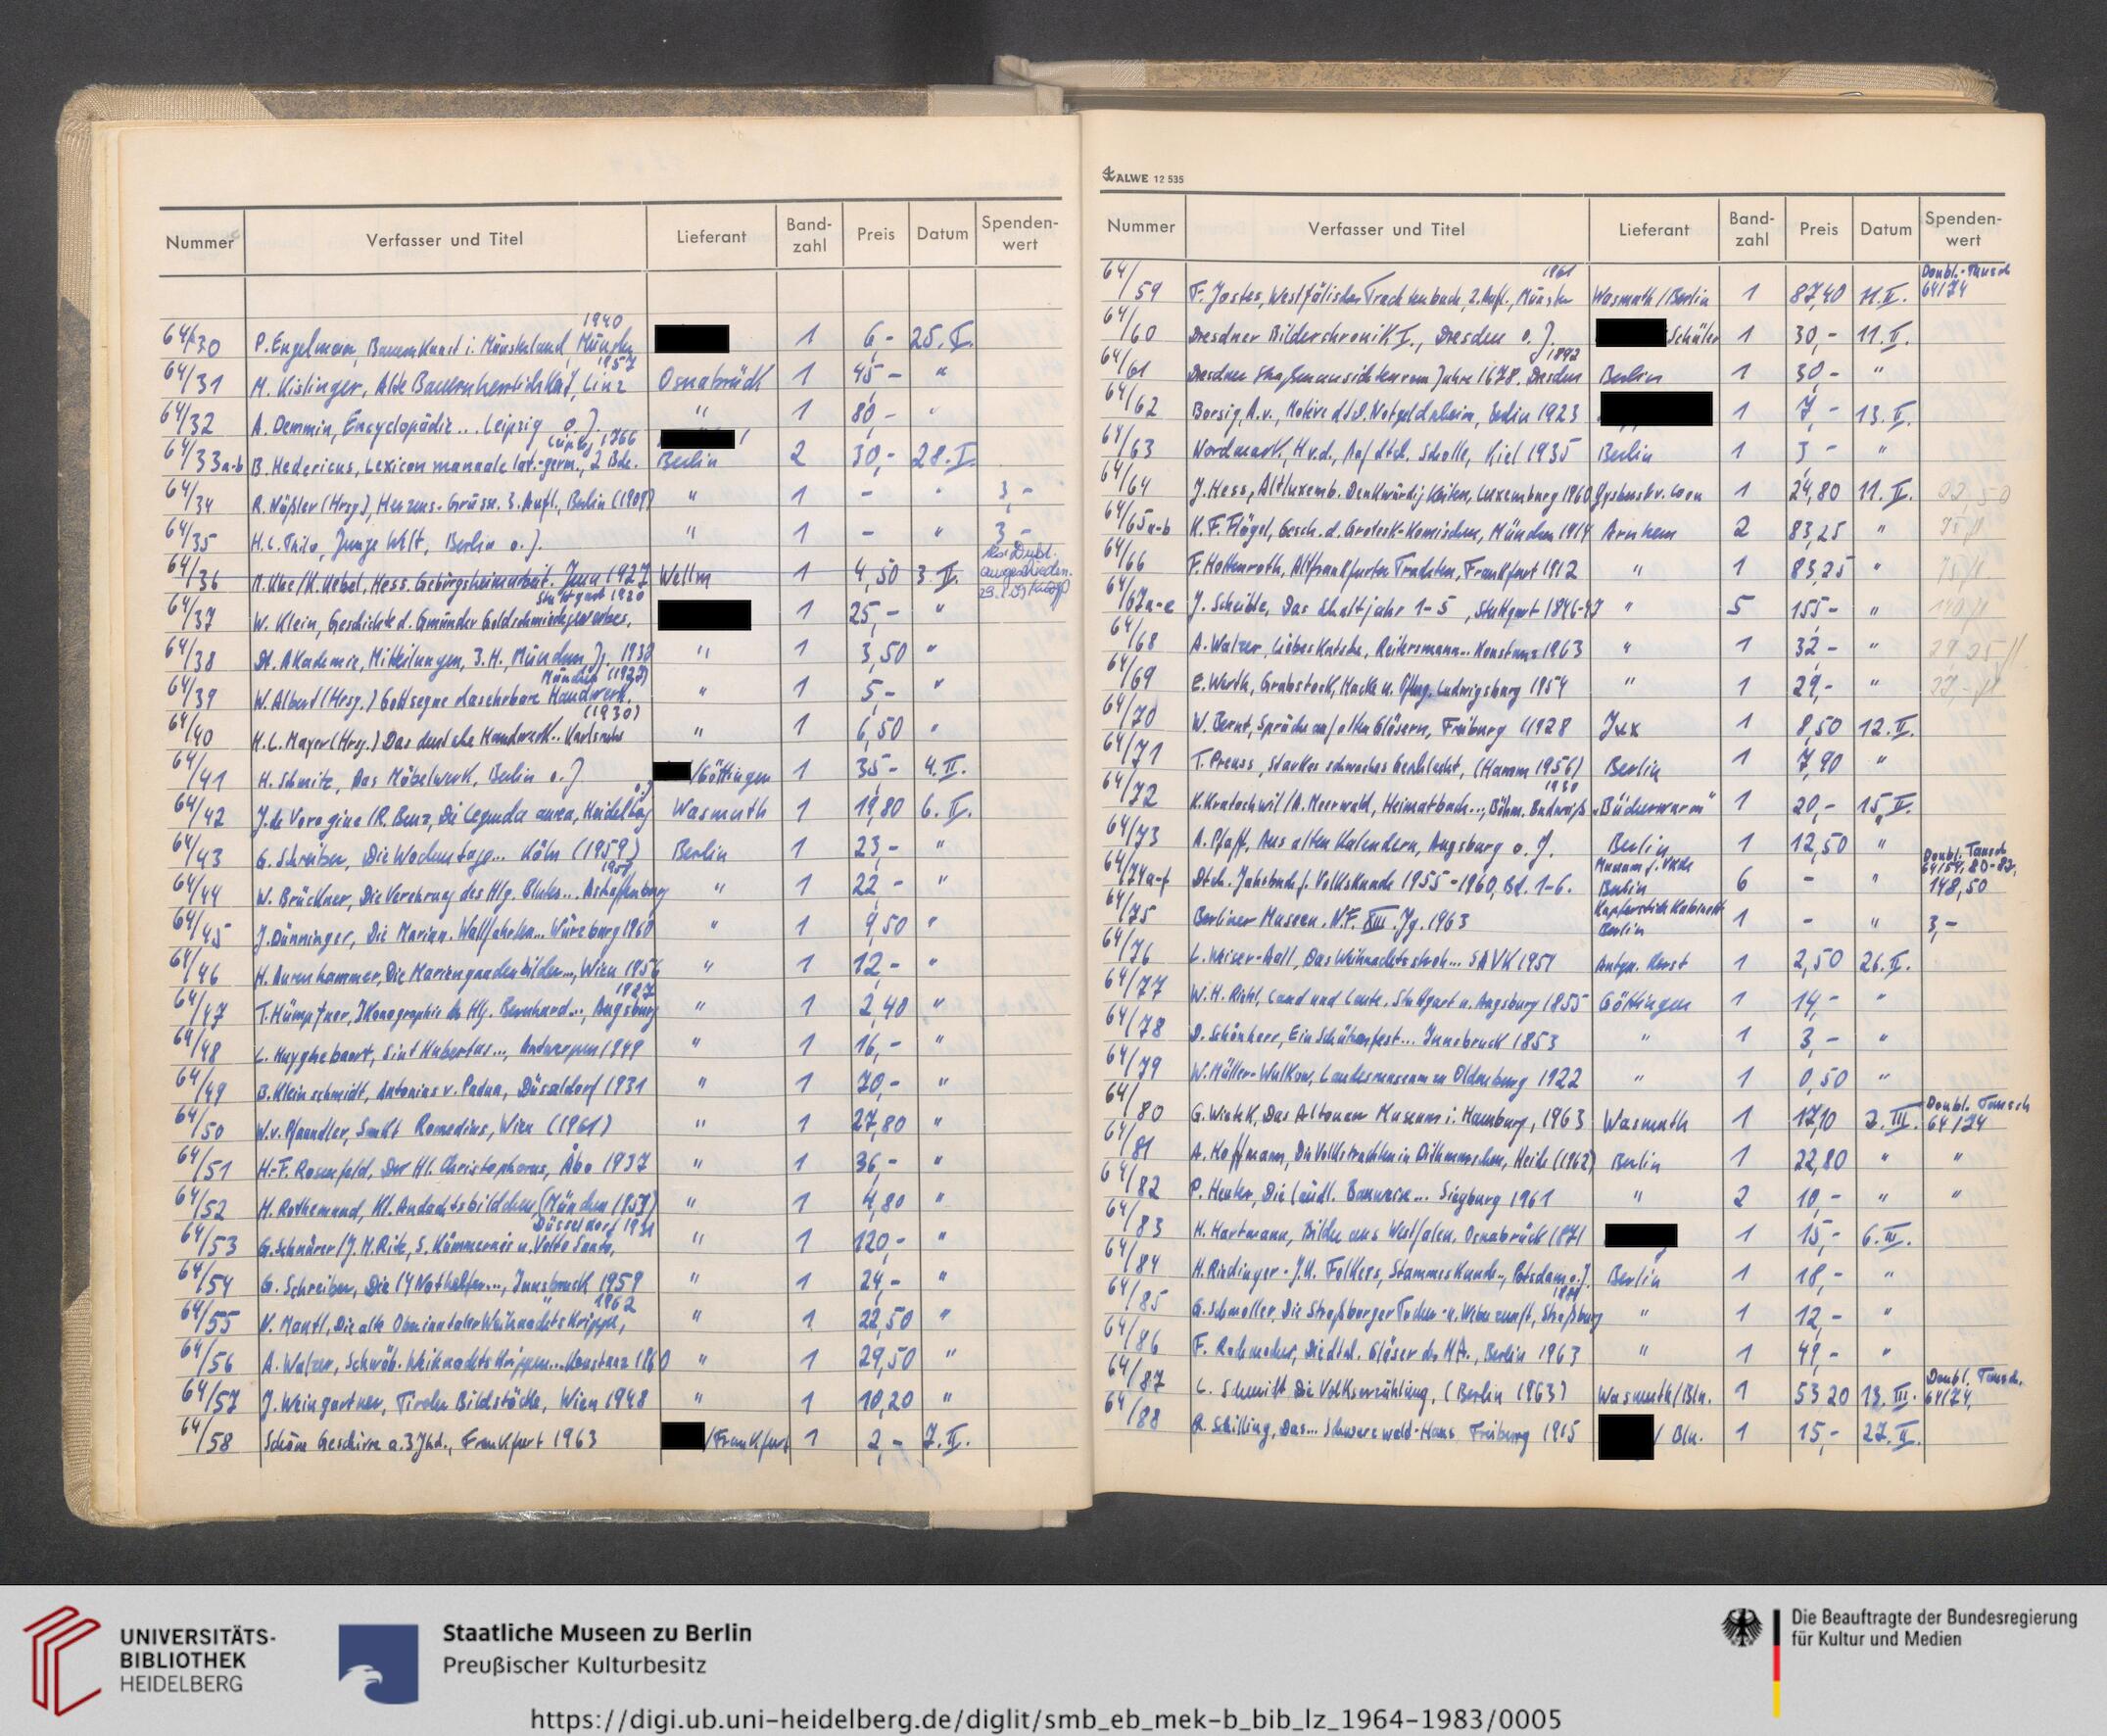 Nummer Verfasser und Titel Lieferant Band-zahl Preis Datum Spenden-wert
1940
64/30 P. Engelmeier, Bauernkunst i. Münsterland, Münster 1 6,- 25. I.
1957
64/31 M. Kislinger, Alte Bauernherrlichkeit, Linz Osnabrück 1 45,- "
64/32 A. Demmin, Encyclopädie... Leipzig o. J. " 1 80,- "
Leipzig 1766
64/33a-b B. Hedericus, Lexicon manuale lat.-germ., 2 Bde. Berlin 2 30,- 28. I.
64/34 R. Nößler (Hrsg), Herzens-Grüsse. 3. Aufl., Berlin (1909) " 1 - " 3,-
64/35 H.C. Thilo, Junge Welt, Berlin o. J. " 1 - " 3,-
64/36 Hess. Gebirgsheimarbeit. Jena 1927 Wellm 1 4,50 3. II. als Dubl. ausgeschieden.
Stuttgart 1920
64/37 W. Klein, Geschichte d. Gmünder Goldschmiedegewerbes, 1 25,- "
64/38 Dt. Akademie, Mitteilungen, 3. H., München Jg. 1938 " 1 3,50 "
München (1927)
64/39 W. Albert (Hrsg.) Gott segne das ehrbare Handwerk, " 1 5,- "
(1930)
64/40 H.L. Mayer (Hrsg.) Das deutsche Handwerk.. Karlsruhe " 1 6,50 "
64/41 H. Schmitz, Das Möbelwerk, Berlin o. J /Göttingen 1 35,- 4. II.
o. J
64/42 J. de Voragine / R. Benz, Die Legenda aurea, Heidelbg Wasmuth 1 19,80 6. II.
64/43 G. Schreiber, Die Wochentage... Köln (1959) Berlin 1 23,- "
1958
64/44 W. Brückner, Die Verehrung des Hlg. Blutes... Aschaffenburg " 1 22,- "
64/45 J. Dünninger, Die Marian. Wallfahrten... Würzburg 1960 " 1 9,50 "
64/46 H. Aurenhammer, Die Mariengnadenbilder..., Wien 1956 " 1 12,- "
1927
64/47 T. Hümpfner, Ikonographie des Hlg. Bernhard..., Augsburg " 1 2,40 "
64/48 L. Huyghebaert, Sint Hubertus..., Antwerpen 1949 " 1 16,- "
64/49 B. Kleinschmidt, Antonius v. Padua, Düsseldorf 1931 " 1 70,- "
64/50 W. v. Pfaundler, Sankt Romedius, Wien (1961) " 1 27,80 "
64/51 H.-F. Rosenfeld, Der Hl. Christophorus, Åbo 1937 " 1 36,- "
64/52 H. Rothemund, Kl. Andachtsbildchen, (München 1959) " 1 4,80 "
Düsseldorf 1934
64/53 G. Schnürer / J. M. Ritz, S. Kümmernis u. Volto Santo, " 1 120,- "
64/54 G. Schreiber, Die 14 Nothelfer..., Innsbruck 1959 " 1 24,- "
" 1962
64/55 N. Mantl, Die alte Oberinntaler Weihnachtskrippe, " 1 22,50 "
64/56 A. Walzer, Schwäb. Weihnachtskrippen... Konstanz 1960 " 1 29,50 "
64/57 J. Weingartner, Tiroler Bildstöcke, Wien 1948 " 1 10,20 "
64/58 Schöne Geschirre a. 3 Jhd., Frankfurt 1963 /Frankfurt 1 2,- 7. II.
ALWE 12 535
Nummer Verfasser und Titel Lieferant Band-zahl Preis Datum Spenden-wert
1961
64/59 F. Jostes, Westfälisches Trachtenbuch, 2. Aufl., Münster Wasmuth/Berlin 1 87,40 11. II. Doubl.-Tausch 64/74
64/60 Dresdner Bilderchronik I., Dresden o. J. Schüler 1 30,- 11. II.
1892
64/61 Dresdner Straßenansichten vom Jahre 1678. Dresden Berlin 1 30,- "
64/62 Borsig, A. v., Motive d. td. Notgeldscheine, Berlin 1923 1 7,- 13. II.
64/63 Nordmark, H. v. d., Auf dtsch. Scholle, Kiel 1935 Berlin 1 3,- "
64/64 J. Hess, Altluxemb. Denkwürdigkeiten, Luxemburg 1960 Gysbers & v. Loon 1 24,80 11. II. 22,50
64/65a-b K. F. Flögel, Gesch. d. Grotesk-Komischen, München 1914 Arnhem 2 83,25 " 75 fl
64/66 F. Hottenroth, Altfrankfurter Trachten, Frankfurt 1912 " 1 83,25 " 75 fl
64/67a-e J. Scheible, Das Schaltjahr 1-5, Stuttgart 1846-47 " 5 155,- " 140 fl
64/68 A. Walzer, Liebeskutsche, Reitersmann.. Konstanz 1963 " 1 32,- " 29,25 fl
64/69 E. Werth, Grabstock, Hacke u. Pflug, Ludwigsburg 1954 " 1 29,- " 27,- fl
64/70 W. Bernt, Sprüche auf alten Gläsern, Freiburg 1928 Jux 1 8,50 12. II.
64/71 T. Preuss, Starkes schwaches Geschlecht, (Hamm 1956) Berlin 1 7,90 "
1930
64/72 K. Kratochwil / A. Meerwald, Heimatbuch..., Böhm. Budweis „Bücherwurm" 1 20,- 15. II.
64/73 A. Pfaff, Aus alten Kalendern, Augsburg o. J. Berlin 1 12,50 "
64/74a-f Dtsch. Jahrbuch f. Volkskunde 1955-1960, Bd. 1-6. Museum f. Vkde Berlin 6 - " Doubl. Tausch 64/59, 80-82, 148,50
64/75 Berliner Museen. N.F. XIII. Jg. 1963 Kupferstichkabinett Berlin 1 - " 3,-
64/76 L. Weiser-Aall, Das Weihnachtsstroh... SAVK 1951 Antqu. Horst 1 2,50 26. II.
64/77 W. H. Riehl, Land und Leute, Stuttgart u. Augsburg 1855 Göttingen 1 14,- "
64/78 D. Schönherr, Ein Schützenfest... Innsbruck 1853 " 1 3,- "
64/79 W. Müller-Wulkow, Landesmuseum zu Oldenburg 1922 " 1 0,50 "
64/80 G. Wietek, Das Altonaer Museum i. Hamburg, 1963 Wasmuth 1 17,10 2. III. Doubl. Tausch 64/74
64/81 A. Hoffmann, Die Volkstrachten in Dithmarschen, Heide (1962) Berlin 1 22,80 " "
64/82 P. Heuter, Die ländl. Bauweise... Siegburg 1961 " 2 10,- " "
64/83 H. Hartmann, Bilder aus Westfalen, Osnabrück 1871 1 15,- 6. III.
64/84 H. Riedinger - J. U. Folkers, Stammeskunde.., Potsdam o. J. Berlin 1 18,- "
64/85 G. Schmoller, Die Straßburger Tucher- u. Weberzunft, Straßburg " 1 12,- "
64/86 F. Rademacher, Die dtsch. Gläser des MA., Berlin 1963 " 1 49,- "
64/87 L. Schmidt Die Volkserzählung, (Berlin 1963) Wasmuth/Bln. 1 53 20 13. III. Doubl. Tausch. 64/74,
64/88 R. Schilling, Das... Schwarzwald-Haus Freiburg 1915 / Bln. 1 15,- 27. II.
UNIVERSITÄTS-
BIBLIOTHEK
HEIDELBERG
Staatliche Museen zu Berlin
Preußischer Kulturbesitz
Die Beauftragte der Bundesregierung
für Kultur und Medien
https://digi.ub.uni-heidelberg.de/diglit/smb_eb_mek-b_bib_lz_1964-1983/0005